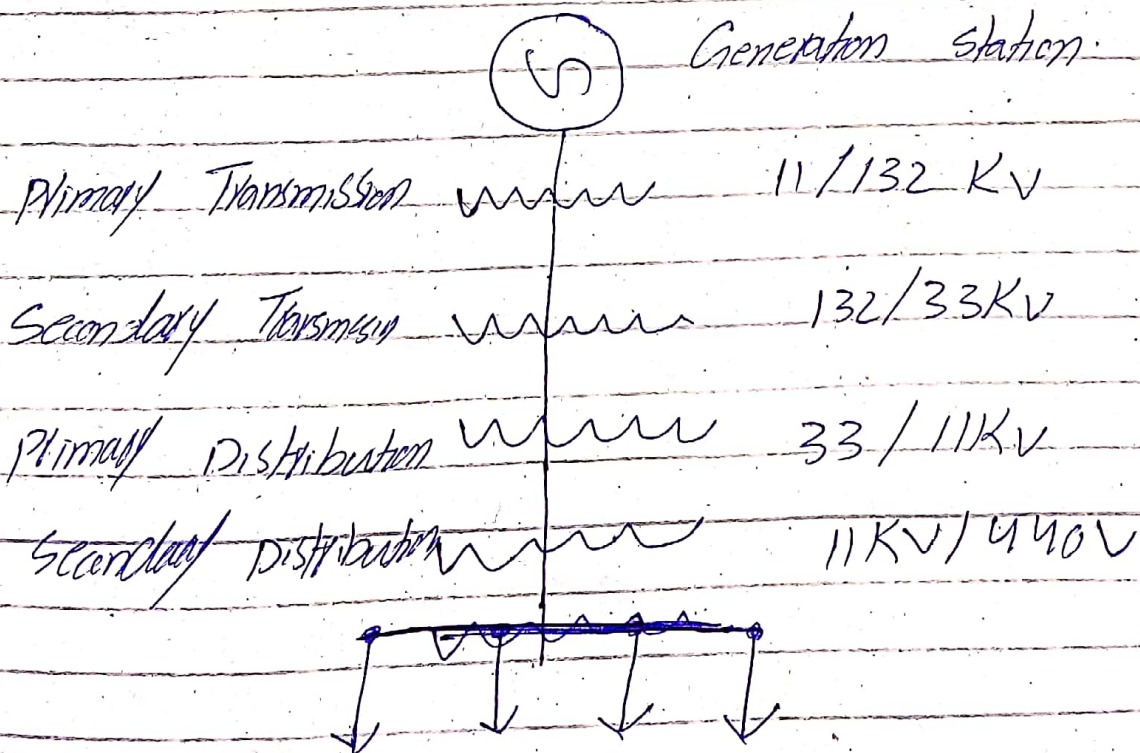 Generation Station.
Primary Transmission 11/132 KV
Secondary Transmission 132/33KV
Primary Distribution 33/11KV
Secondary Distribution 11KV/440V